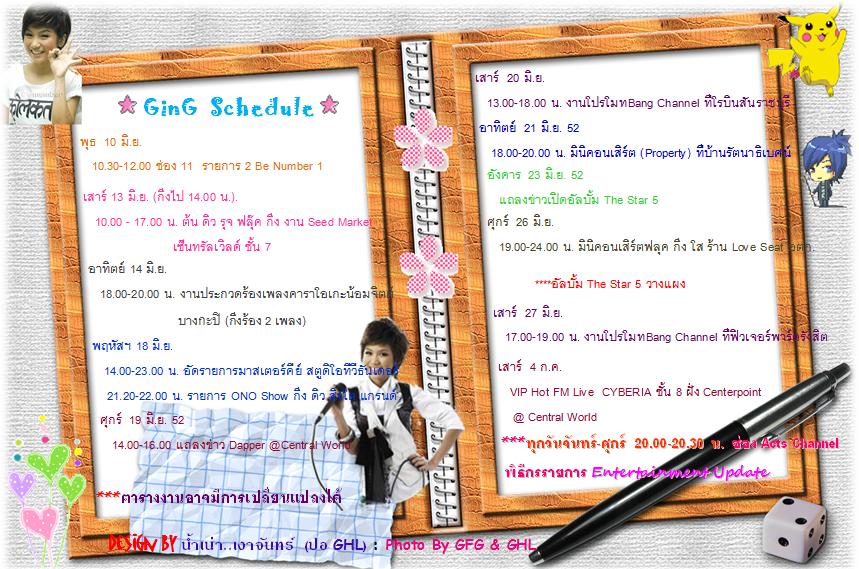 GinG Schedule
พุธ 10 มิ.ย.
10.30-12.00 ช่อง 11 รายการ 2 Be Number 1
เสาร์ 13 มิ.ย. (กิ่งไป 14.00 น.).
10.00 - 17.00 น. ต้น ดิว รุจ ฟลุ๊ค กิ่ง งาน Seed Market
เซ็นทรัลเวิลด์ ชั้น 7
อาทิตย์ 14 มิ.ย.
18.00-20.00 น. งานประกวดร้องเพลงคาราโอเกะน้อมจิตต์
บางกะปิ (กิ่งร้อง 2 เพลง)
พฤหัสฯ 18 มิ.ย.
14.00-23.00 น. อัดรายการมาสเตอร์คีย์ สตูดิโอทีวีธันเดอร์
21.20-22.00 น. รายการ ONO Show กิ่ง ดิว แกรนด์
ศุกร์ 19 มิ.ย. 52
14.00-16.00 แถลงข่าว Dapper @Central World
***ตารางงานอาจมีการเปลี่ยนแปลงได้
เสาร์ 20 มิ.ย.
13.00-18.00 น. งานโปรโมทBang Channel ที่โรบินสันราชบุรี
อาทิตย์ 21 มิ.ย. 52
18.00-20.00 น. มินิคอนเสิร์ต (Property) ที่บ้านรัตนาธิเบศน์
อังคาร 23 มิ.ย. 52
แถลงข่าวเปิดอัลบั้ม The Star 5
ศุกร์ 26 มิ.ย.
19.00-24.00 น. มินิคอนเสิร์ตฟลุค กิ่ง ใส ร้าน Love Seat
****อัลบั้ม The Star 5 วางแผง
เสาร์ 27 มิ.ย.
17.00-19.00 น. งานโปรโมทBang Channel ที่ฟิวเจอร์พาร์ครังสิต
เสาร์ 4 ก.ค.
VIP Hot FM Live CYBERIA ชั้น 8 ฝั่ง Centerpoint
@ Central World
***ทุกวันจันทร์-ศุกร์ 20.00-20.30 น. ช่อง Acts Channel
พิธีกรรายการ Entertainment Update
DESIGN BY น้ำเน่า..เงาจันทร์ (ปอ GHL) : Photo By GFG & GHL